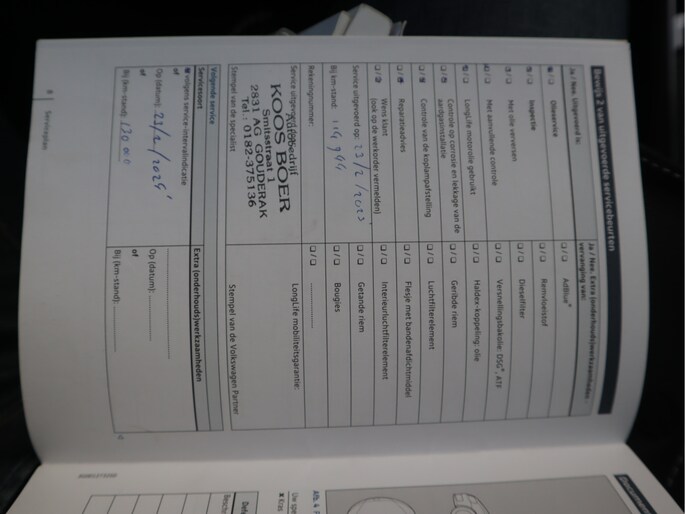 Bewijs 2 van uitgevoerde servicebeurten
Ja / Nee, Uitgevoerd is:
Olieservice
Inspectie
Met olie verversen
Met aanvullende controle
LongLife motorolie gebruikt
Controle op corrosie en lekkage van de aardgasinstallatie
Controle van de koplampafstelling
Reparatieadvies
Wens klant
(ook op de werkorder vermelden)
Service uitgevoerd op: 23/2/2023
Bij km-stand:
Rekeningnummer:
Service uitgevoerd door:
Autobedrijf
KOOS BOER
Smitsstraat 1
2831 AG GOUDERAK
Tel.: 0182-375136
Stempel van de specialist
Ja / Nee, Extra (onderhouds)werkzaamheden
vervanging van:
AdBlue®
Remvloeistof
Dieselfilter
Versnellingsbakolie: DSG®, ATF
Haldex-koppeling: olie
Geribde riem
Luchtfilterelement
Flesje met bandenafdichtmiddel
Interieurluchtfilterelement
Getande riem
Bougies
LongLife mobiliteitsgarantie:
Stempel van de Volkswagen Partner
Volgende service
Servicesoort
volgens service-intervalindicatie
of
Op (datum):
of
Bij (km-stand): 130.000
Extra (onderhouds)werkzaamheden
Op (datum):
of
Bij (km-stand):
8
Serviceplan